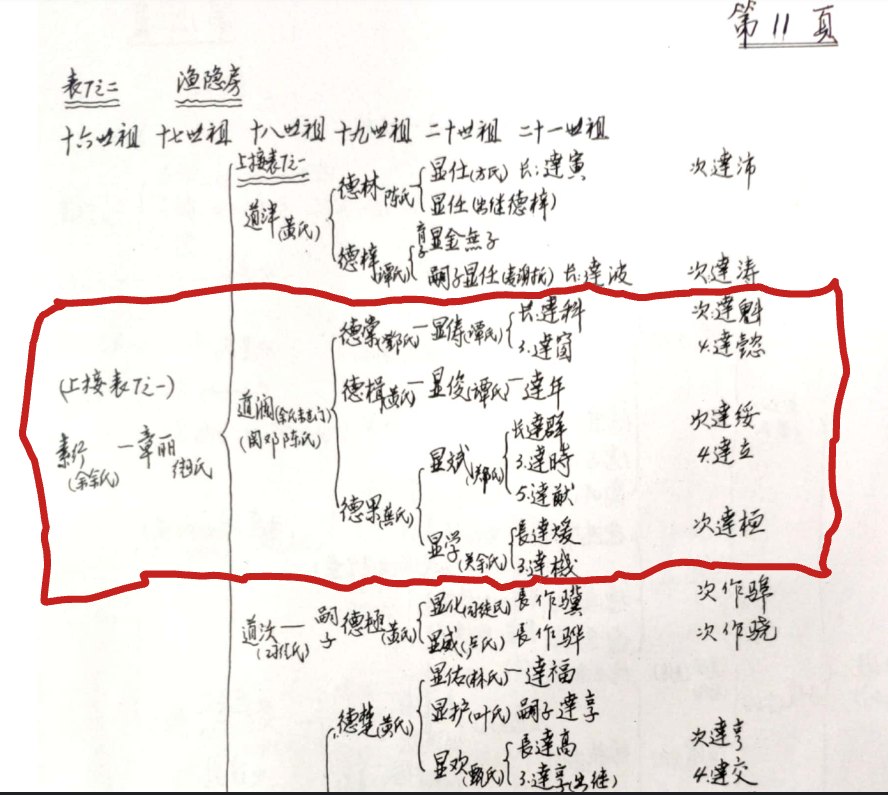 第11頁
表7之二 渔隐房
十六世祖 十七世祖 十八世祖 十九世祖 二十世祖 二十一世祖
上接表7之一
道津(黄氏) 德林陈氏 显仕(方氏) 长:達寅 次達沛
显任(出继德梓)
德梓(谭氏) 育子显金無子
嗣子显任 長:達波 次達涛
(上接表7之一)
素行(余余氏) 一章丽
道润
(闵邓陈氏)
德棠(鄧氏)一显俦(谭氏) 长達科 次達魁
3.達窗 4.達懿
德楫(黄氏)一显俊(谭氏)一達年
德果 显斌 长達群 次達绥
3.達時 4.達立
5.達猷
显学(关余氏) 長達煖 次達桓
3.達棧
道次一嗣子德極(黄氏) 显化(司徒氏) 長作骥 次作騂
(司徒氏) 显威(卢氏) 長作骅 次作骁
德楚(黄氏) 显佑(林氏)一達福
显护(叶氏) 嗣子達享
显欢(甄氏) 長達高 次達亨
3.達享(出继) 4.達交